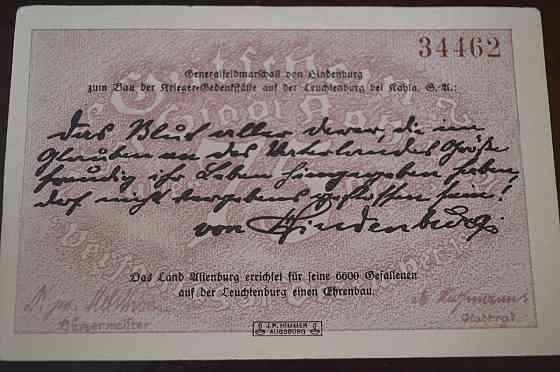 34462
Generalfeldmarschall von Hindenburg
zum Bau der Krieger-Gedenkstätte auf der Leuchtenburg bei Kahla. S.-A.:
Das Blut aller derer, die im
Glauben an des Vaterlandes Größe
freudig ihr Leben hingegeben haben,
darf nicht vergebens geflossen sein!
von Hindenburg.
Das Land Altenburg errichtet für seine 6600 Gefallenen
auf der Leuchtenburg einen Ehrenbau.
Bürgermeister
Stadtrat
J.P. HIMMER
AUGSBURG